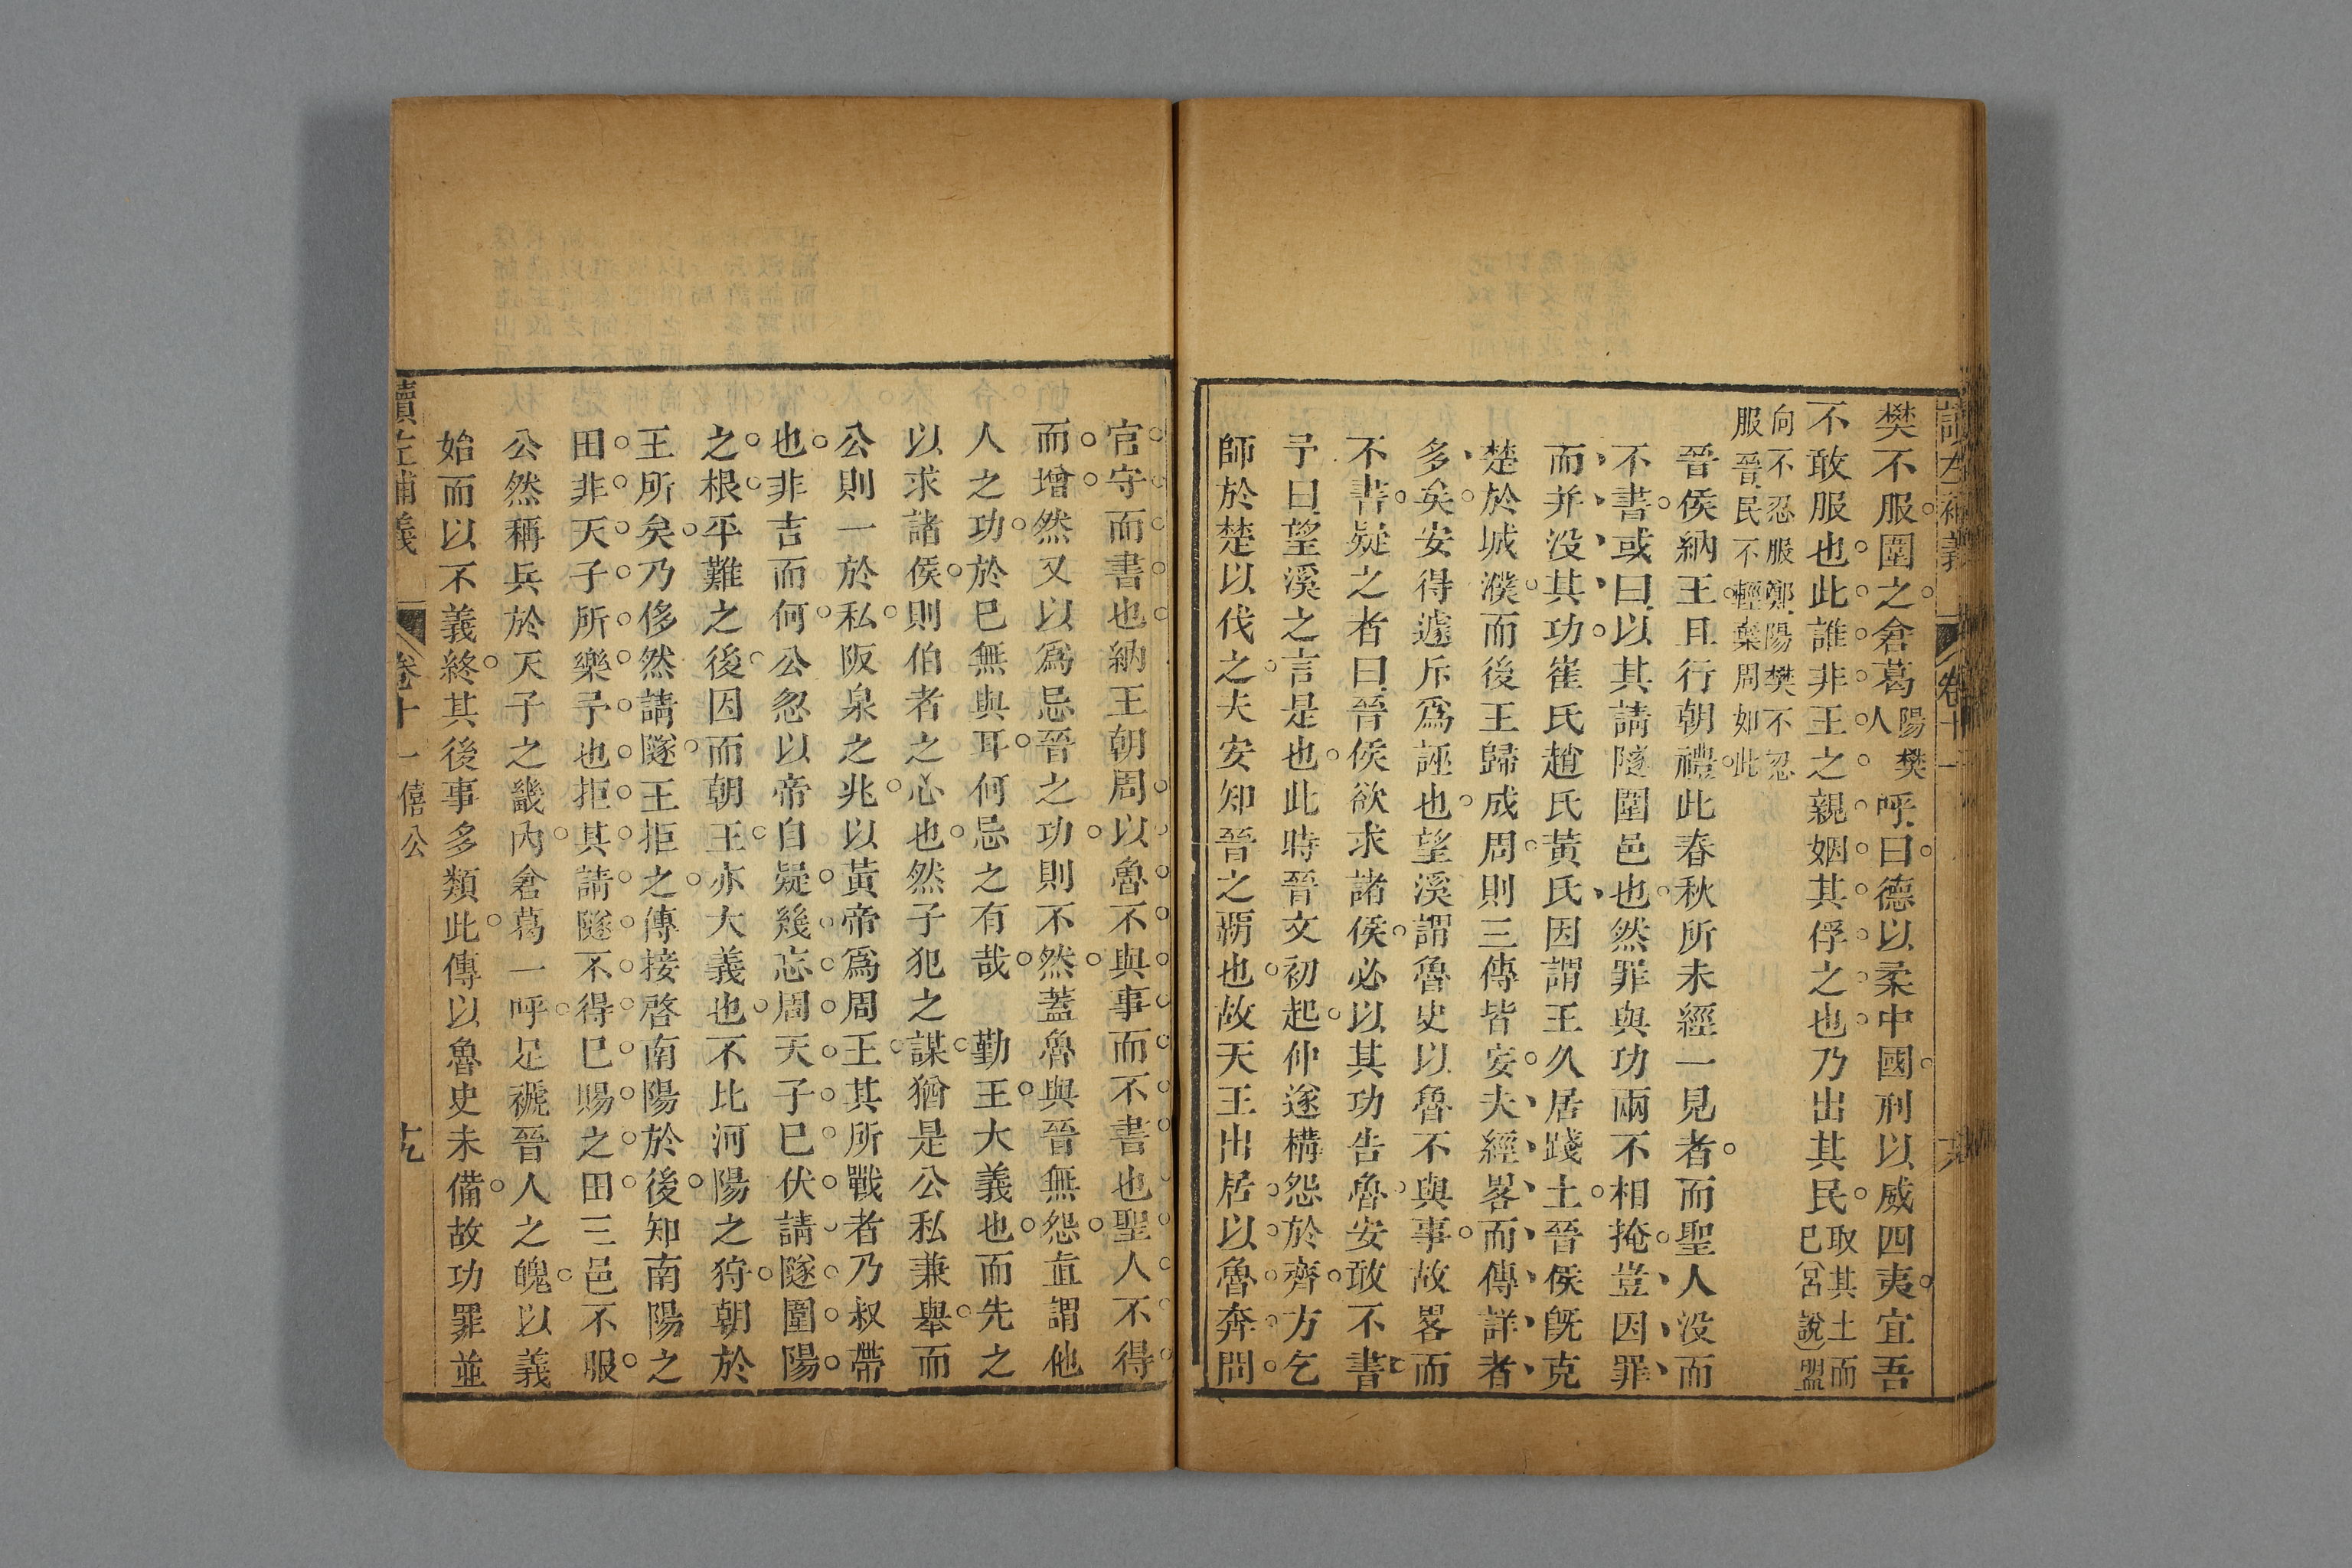 讀左補義 卷十一
樊不服圍之倉葛陽樊人呼曰德以柔中國刑以威四夷宜吾
不敢服也此誰非王之親姻其俘之也乃出其民取其土而已呂說盟
向不忍服鄭陽樊不忍
服晉民不輕棄周如此
晉侯納王且行朝禮此春秋所未經一見者而聖人没而
不書或曰以其請隧圍邑也然罪與功兩不相掩豈因罪
而并没其功崔氏趙氏黃氏因謂王久居踐土晉侯旣克
楚於城濮而後王歸成周則三傳皆妄夫經畧而傳詳者
多矣安得遽斥爲誣也望溪謂魯史以魯不與事故畧而
不書疑之者曰晉侯欲求諸侯必以其功告魯安敢不書
予曰望溪之言是也此時晉文初起仲遂構怨於齊方乞
師於楚以伐之夫安知晉之覇也故天王出居以魯奔問
官守而書也納王朝周以魯不與事而不書也聖人不得
而增然又以爲忌晉之功則不然蓋魯與晉無怨直謂他
人之功於已無與耳何忌之有哉 勤王大義也而先之
以求諸侯則伯者之心也然子犯之謀猶是公私兼舉而
公則一於私阪泉之兆以黃帝爲周王其所戰者乃叔帶
也非吉而何公忽以帝自疑幾忘周天子已伏請隧圍陽
之根平難之後因而朝王亦大義也不比河陽之狩朝於
王所矣乃侈然請隧王拒之傳接啓南陽於後知南陽之
田非天子所樂予也拒其請隧不得已賜之田三邑不服
公然稱兵於天子之畿內倉葛一呼足褫晉人之魄以義
始而以不義終其後事多類此傳以魯史未備故功罪並
讀左補義 卷十一 僖公 十九